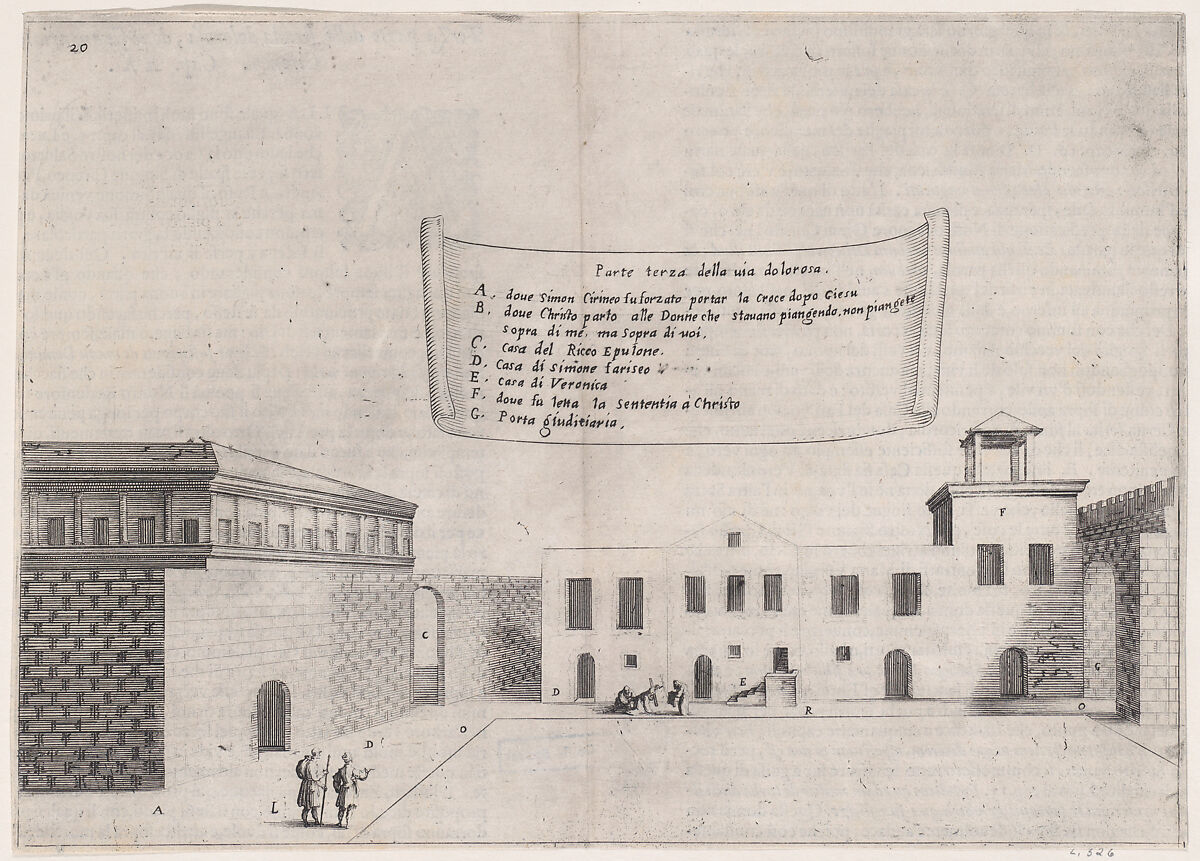 20
Parte terza della uia dolorosa.
A. doue Simon Cirineo fu forzato portar la Croce dopo Giesu
B. doue Christo parlo alle Donne che stauano piangendo, non piangete
sopra di me, ma sopra di uoi.
C. Casa del Ricco Epulone.
D. Casa di Simone fariseo
E. Casa di Veronica
F. doue fu letta la Sententia à Christo
G. Porta giuditiaria.
F
C
G
D
E
R
O
O
D
A
L
L. 526